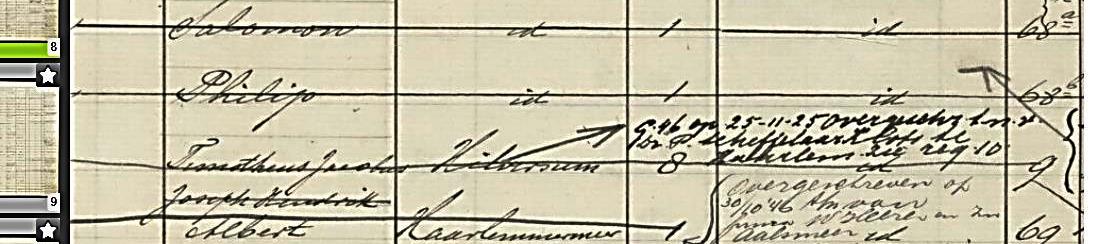 Salomon id 1 id 68 a
8
Philip id 1 id 68 b
G.46 op 25-11-25 overgeschr t.n.v.
Dr. P. Scheffelaar Klots te
Haarlem zie reg 10
Timotheus Jacobus Hilversum 8 id 9
Joseph Hendrik
Overgeschreven op
30/10 '46 t.n. van
9
Albert Haarlemmermeer 1 id 69
Aalsmeer